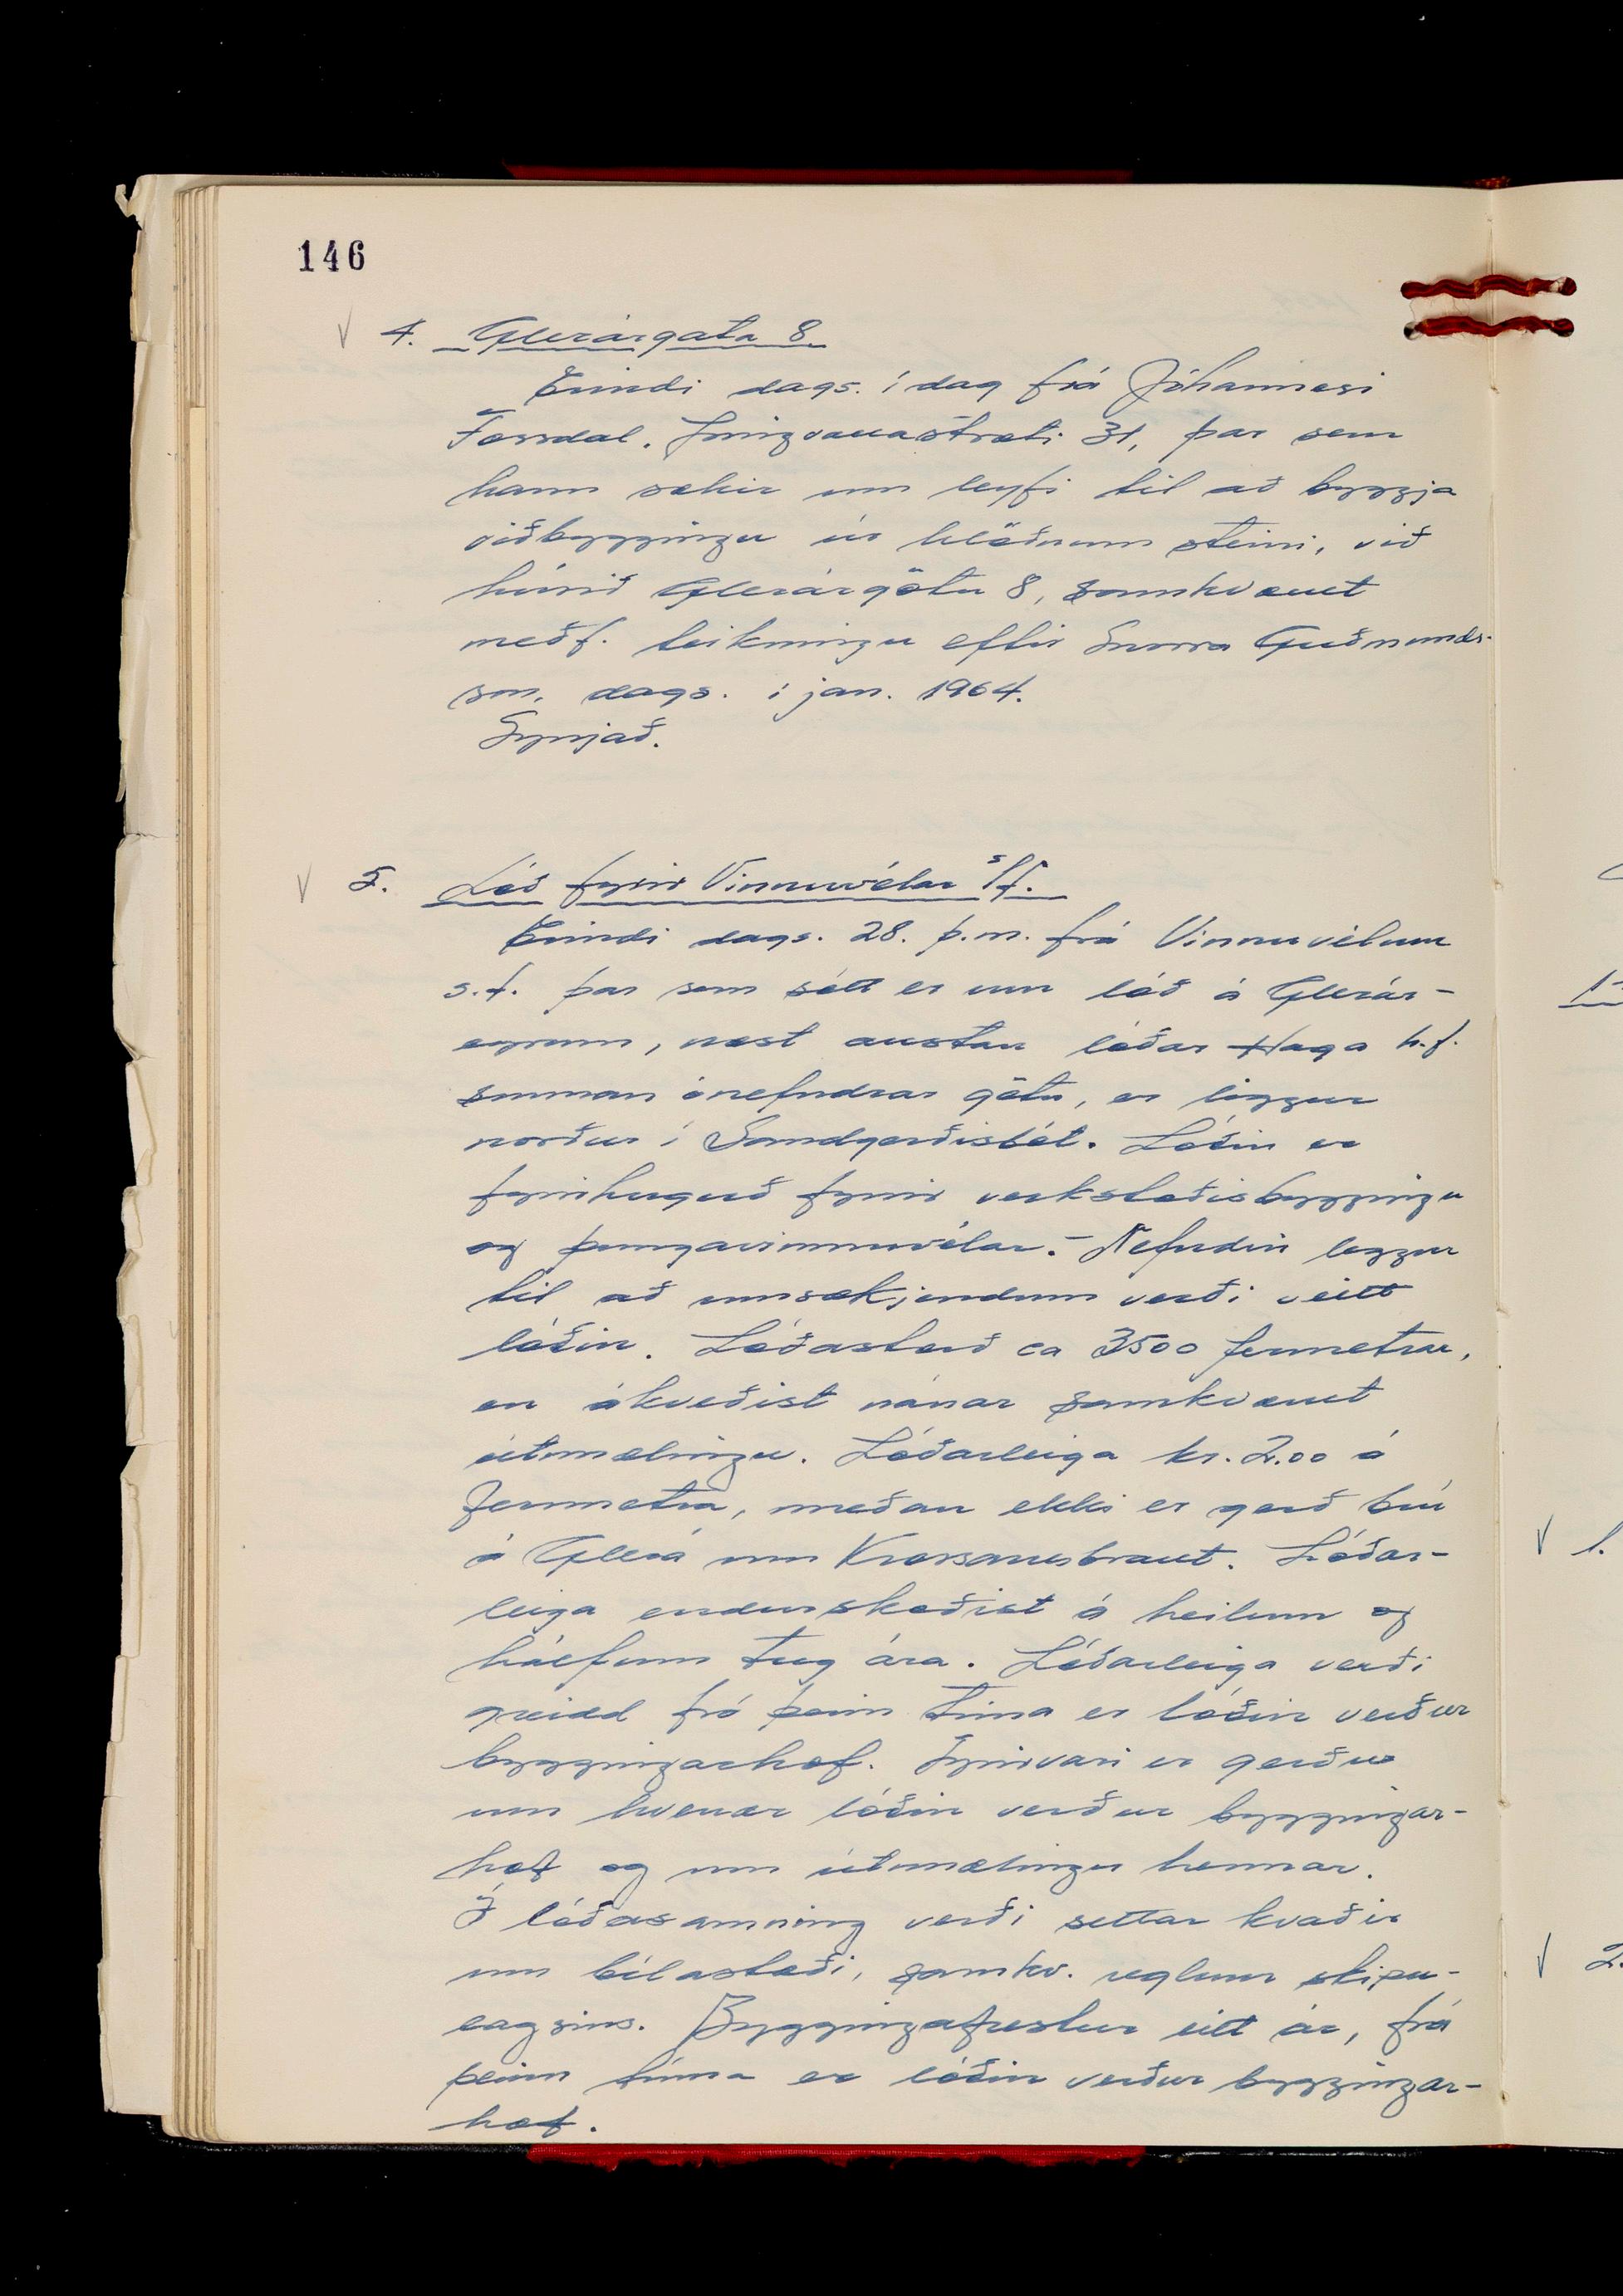 146
√ 4. Glerárgata 8
Erindi dags. í dag frá Jóhannesi
Fossdal, Þingvallastræti 31, þar sem
hann sækir um leyfi til að byggja
viðbyggingu úr hlöðnum steini, við
húsið Glerárgötu 8, samkvæmt
meðf. teikningu eftir Snorra Guðmunds-
son, dags. í jan. 1964.
Synjað.
√ 5. Lóð fyrir Vinnuvélar s/f.
Erindi dags. 28. þ.m. frá Vinnuvélum
s.f. þar sem sótt er um lóð á Glerár-
eyrum, næst austan lóðar Haga h.f.
sunnan ónefndrar götu, er liggur
norður í Sandgerðisbót. Lóðin er
fyrirhuguð fyrir verkstæðisbyggingu
og þungavinnuvélar.- Nefndin leggur
til að umsækjendum verði veitt
lóðin. Lóðastærð ca 3500 fermetrar,
en ákveðist nánar samkvæmt
útmælingu. Lóðarleiga kr. 2.00 á
fermetra, meðan ekki er gerð brú
á Glerá um Krossanesbraut. Lóðar-
leiga endurskoðist á heilum og
hálfum tug ára. Lóðarleiga verði
greidd frá þeim tíma er lóðin verður
byggingarhæf. Fyrirvari er gerður
um hvenær lóðin verður byggingar-
hæf og um útmælingu hennar.
Í lóðasamning verði settar kvaðir
um bílastæði, samkv. reglum skipu-
lagsins. Byggingafrestur eitt ár, frá
þeim tíma er lóðin verður byggingar-
hæf.
√ 1.
√ 2.